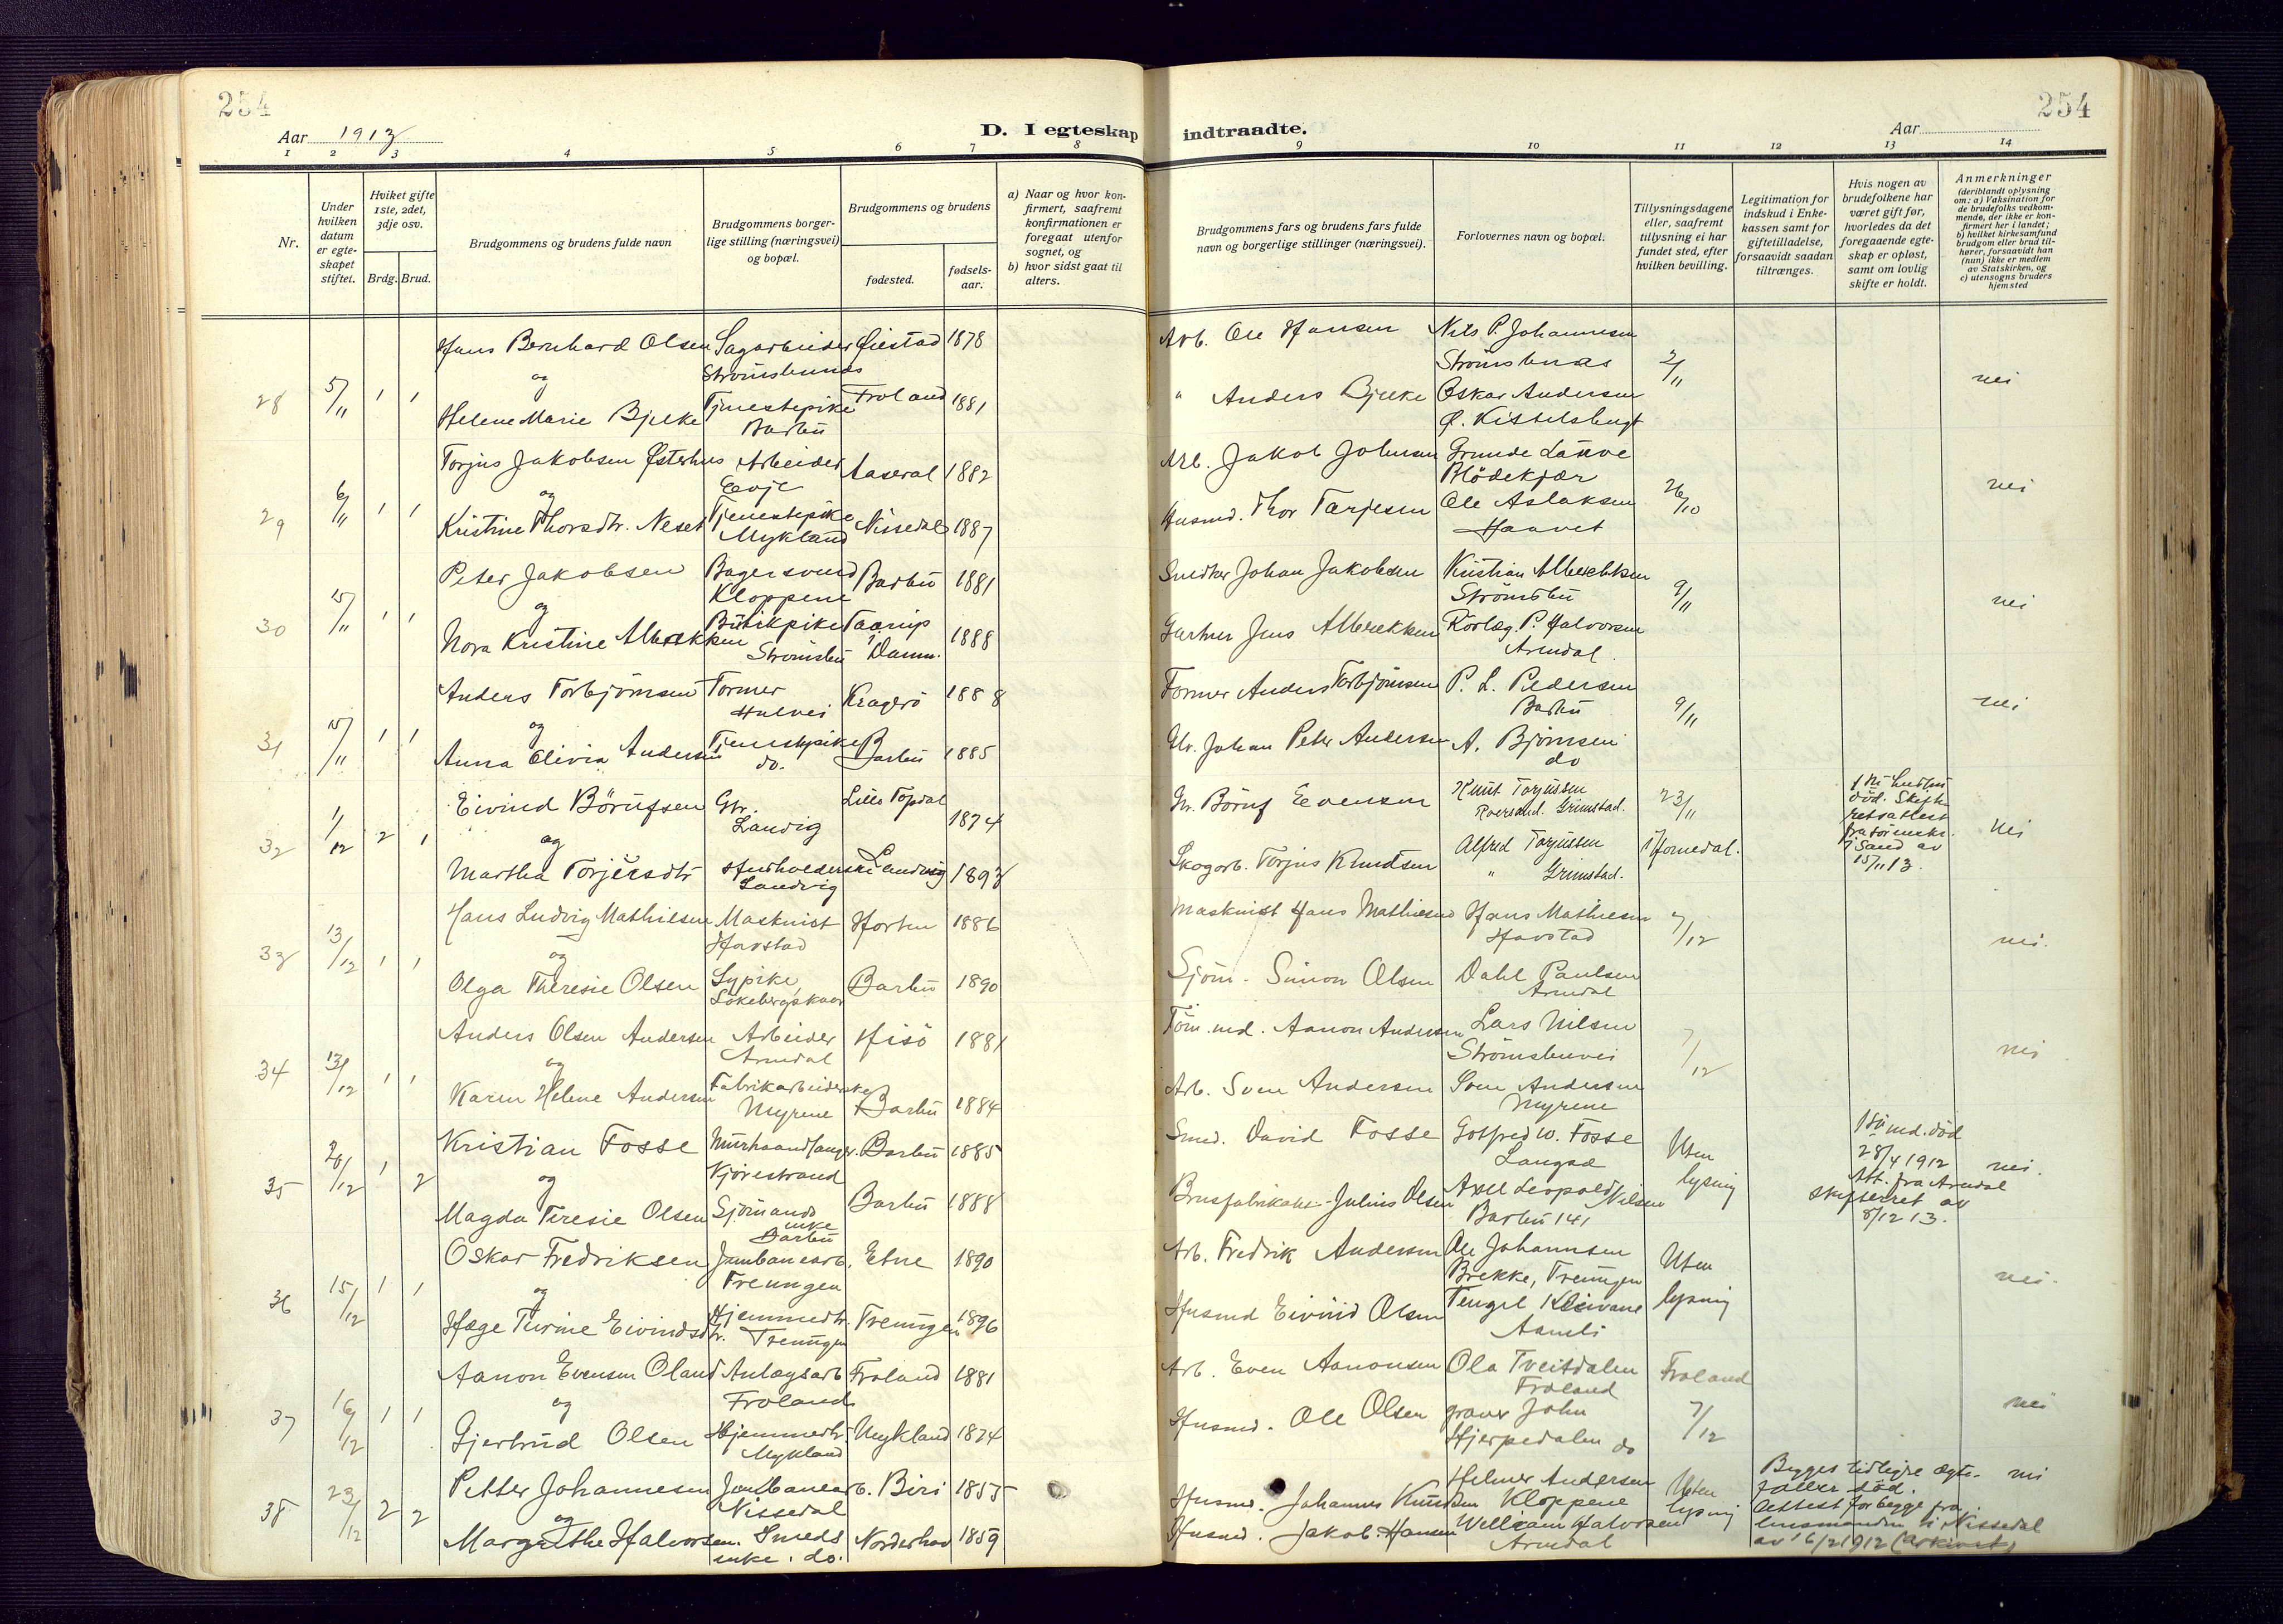 254
Aar 1913
D. I egteskap indtraadte.
Aar
254
1 2 3 4 5 6 7 8 9 10 11 12 13 14
Nr.
Under hvilken datum er egteskapet stiftet.
Hviket gifte 1ste, 2det, 3dje osv.
Brdg. Brud.
Brudgommens og brudens fulde navn
Brudgommens borgerlige stilling (næringsvei) og bopæl.
Brudgommens og brudens
fødested.
fødselsaar.
a) Naar og hvor konfirmert, saafremt konfirmationen er foregaat utenfor sognet, og
b) hvor sidst gaat til alters.
Brudgommens fars og brudens fars fulde navn og borgerlige stillinger (næringsvei).
Forlovernes navn og bopæl.
Tillysningsdagene eller, saafremt tillysning ei har fundet sted, efter hvilken bevilling.
Legitimation for indskud i Enkekassen samt for giftetilladelse, forsaavidt saadan tiltrænges.
Hvis nogen av brudefolkene har været gift før, hvorledes da det foregaaende egteskap er opløst, samt om lovlig skifte er holdt.
Anmerkninger (deriblandt oplysning om: a) Vaksination for de brudefolks vedkommende, der ikke er konfirmert her i landet; b) hvilket kirkesamfund brudgom eller brud tilhører, forsaavidt han (hun) ikke er medlem av Statskirken, og c) utensogns bruders hjemsted
28 5/11 1 1
Hans Bernhard Olsen Sagarbeider Øiestad 1878 Arb. Ole Hansen Nils P. Johannesen
og Strømsbunæs Strømsbnæs 2/11 nei
Helene Marie Bjelke Tjenestepike Froland 1881 " Anders Bjelke Oskar Andersen
Barbu Ø. Kittelsbugt
29 6/11 1 1
Torjus Jakobsen Østerhus Arbeider Aaseral 1882 Arb. Jakob Johnsen Grunde Lauve
og Evje Blödekjær 26/10 nei
Kristine Thorsdtr. Neset Tjenestepike Nissedal 1887 Husmd. Thor Tarjesen Ole Aslaksen
Mykland Haavet
30 15/11 1 1
Peter Jakobsen Bagersvend Barbu 1881 Snedker Johan Jakobsen Kristian Albrechtsen
og Kloppene Strømsbu 9/11 nei
Nora Kristine Albrektsen Butikpike Taarup 1888 Gartner Jens Albrektsen Rörlæg. P. Halvorsen
Strømsbu Danm. Arendal
31 15/11 1 1
Anders Torbjörnsen Former Kragerö 1888 Former Anders Torbjörnsen P. L. Pedersen
og Hulvei Barbu 9/11 nei
Anna Elivia Andersen Tjenestepike Barbu 1885 Gbr. Johan Peter Andersen A. Bjørnsen
do. do
32 1/12 2 1
Eivind Börufsen Gbr. Lille Topdal 1874 Gbr. Böruf Evensen Knut Torjussen
og Landvig Roresand. Grimstad. 23/11 nei
Martha Torjersdtr Husholderske Landvig 1893 Skogarb. Torjus Knudsen Alfred Torjussen
Landvig " Grimstad. i Homedal.
død. Skifteretsattest fra sorenskr. i Sand av 15/11 13.
33 13/12 1 1
Hans Ludvig Mathiesen Maskinist Horten 1886 Maskinist Hans Mathiesen Hans Mathiesen
og Havstad Havstad 7/12 nei.
Olga Theresie Olsen Sypike, Barbu 1890 Sjöm. Simon Olsen Dahl Paulsen
Lökebergskaar Arendal
34 13/12 1 1
Anders Olsen Andersen Arbeider Hisö 1881 Töm.md. Aanon Andersen Lars Nilsen
og Arendal Strömsbuvei 7/12 nei
Karen Helene Andersen Fabrikarbeiderske Barbu 1884 Arb. Sven Andersen Sven Andersen
Myrene Myrene
35 20/12 1 2
Kristian Fosse Murhaandlanger. Barbu 1885 Smed. David Fosse Gotfred W. Fosse
og Kjørestrand Langsæ Uten lysning
Magda Teresie Olsen Sjömands enke Barbu 1888 Brusfabrikant Julius Olsen Axel Leopold Nilsen
Barbu Barbu 141
1ste md. død 28/4 1912 Att. fra Arendal skifteret av 8/12 13. nei.
36 15/12 1 1
Oskar Fredriksen Jernbanearb. Etne 1890 Arb. Fredrik Andersen Ole Johannsen
og Treungen Brekke, Treungen Uten lysning nei.
Hæge Turine Eivindsdtr. Hjemmedtr. Treungen 1896 Husmd Eivind Olsen Tengel Kleivane
Treungen Aamli
37 16/12 1 1
Aanon Evensen Oland Anlægsarb Froland 1881 Arb. Even Aanonsen Ola Tveitdalen
og Froland Froland Froland 7/12 nei
Gjertrud Olsen Hjemmedtr. Mykland 1874 Husmd. Ole Olsen graver John
Mykland Hjerpedalen do
38 23/12 2 2
Petter Johannesen Jernbanearb. Biri 1855 Husmd. Johannes Knudsen Helmer Andersen
og Nissedal Kloppene Uten lysning
Margrethe Halvorsen. Smeds enke. do. Norderhov 1859 Husmd. Jakob Hansen William Halvorsen
Arendal
Begges tidligre ægtefæller död. Attest for begge fra lensmanden i Nissedal av 16/2 1912 (arkivet) nei